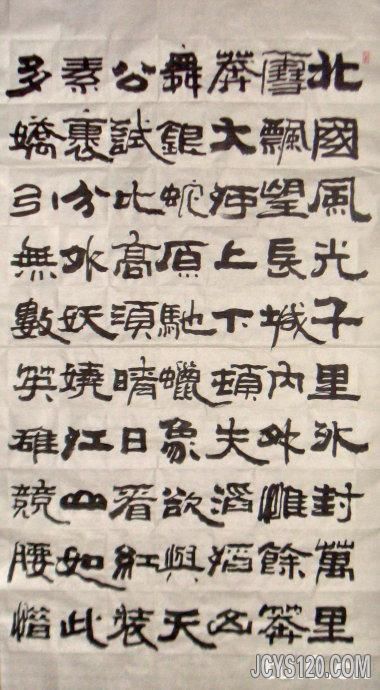 北國風光子里冰封萬里
雪飄望長城内外惟餘莽
莽大河上下頓失滔滔山
舞銀蛇原馳蠟象欲與天
公試比高須晴日看紅裝
素裹分外妖嬈江山如此
多嬌引無數英雄競腰惜
JCYS120.COM